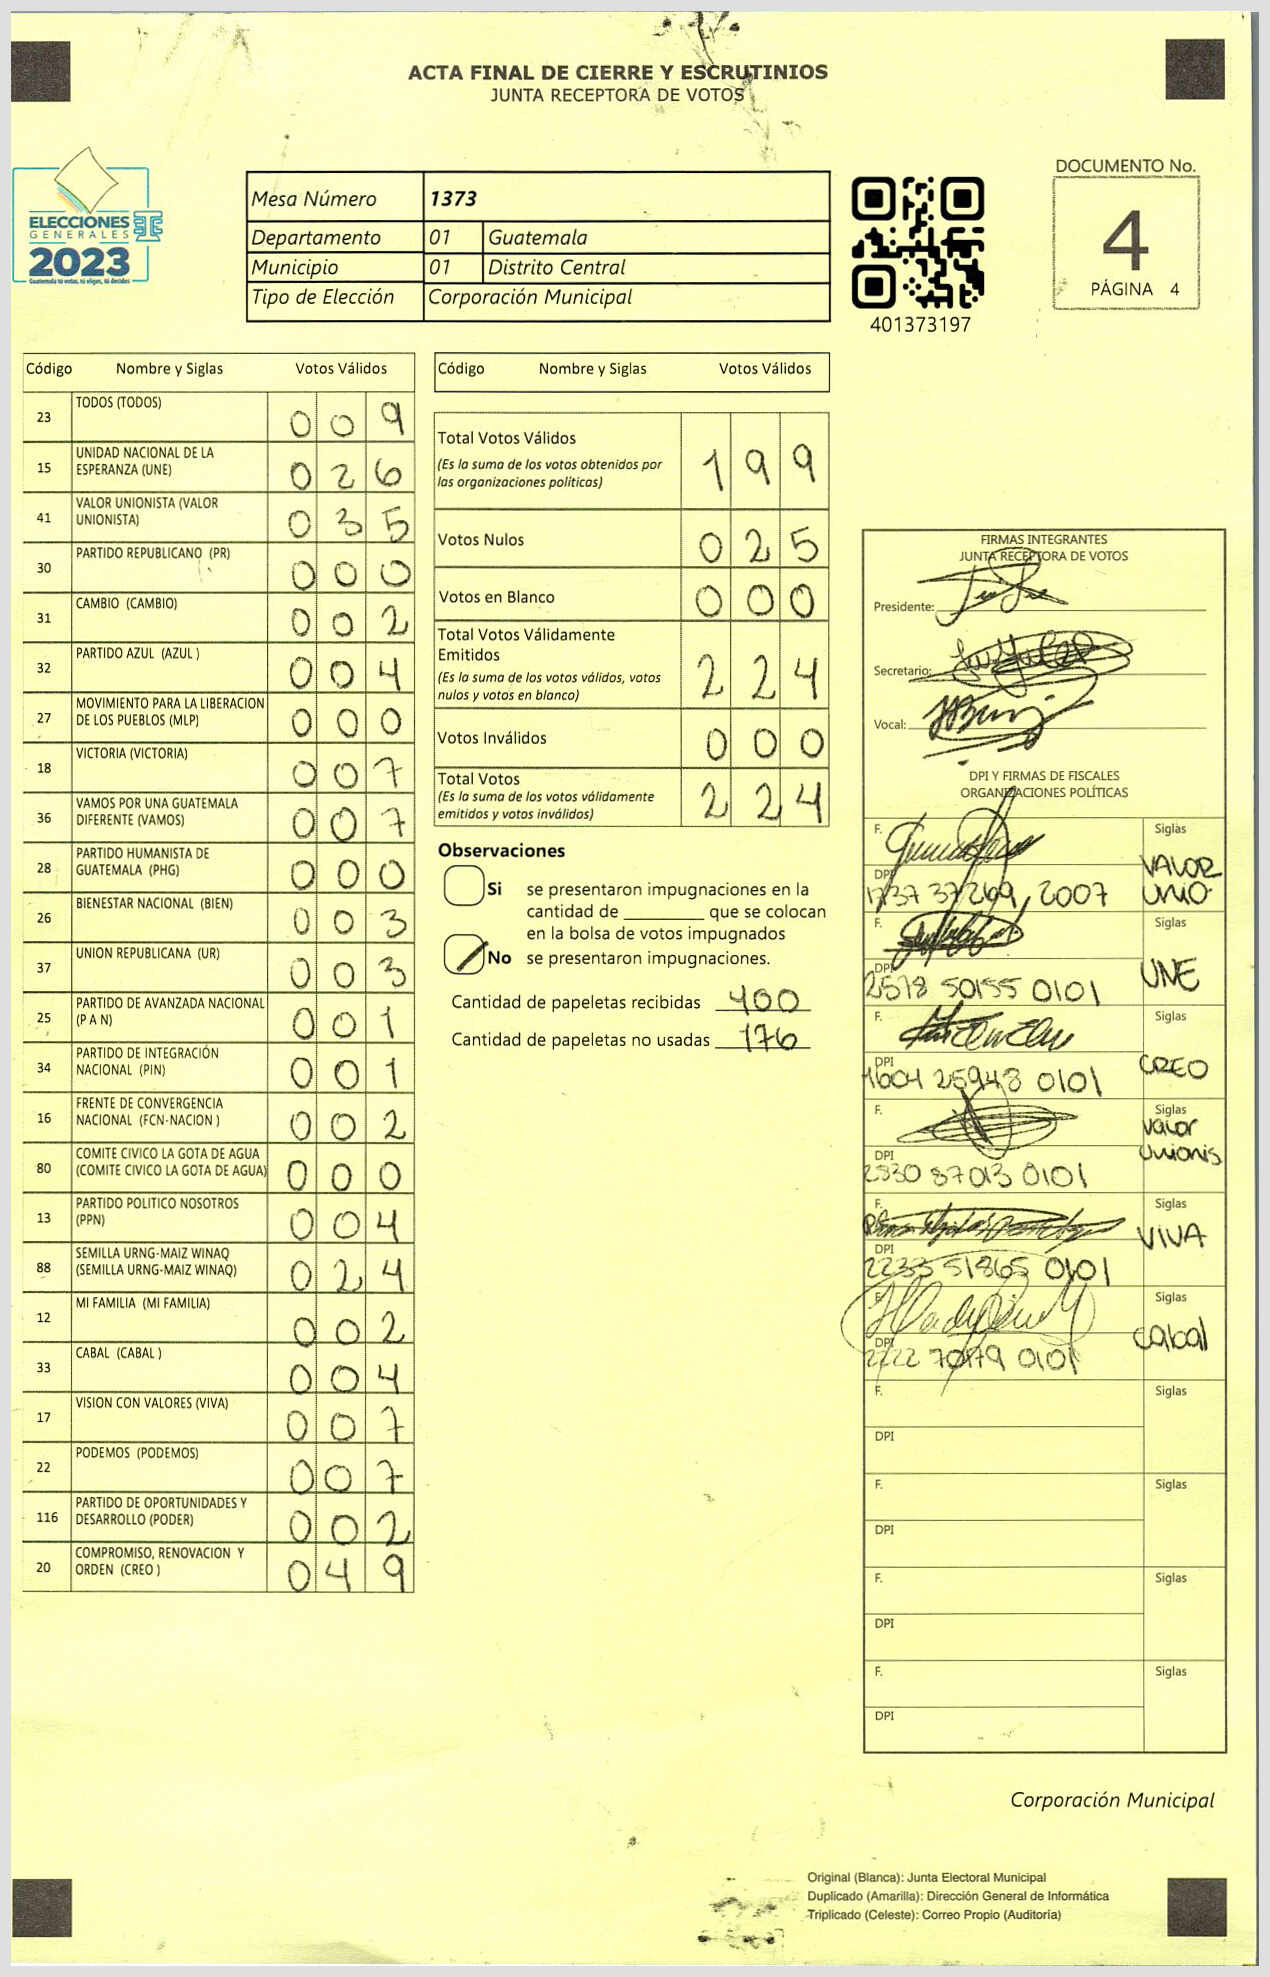 ACTA FINAL DE CIERRE Y ESCRUTINIOS
JUNTA RECEPTORA DE VOTOS
ELECCIONES
GENERALES
2023
Guatemala tú votas, tú eliges, tú decides
Mesa Número 1373
Departamento 01 Guatemala
Municipio 01 Distrito Central
Tipo de Elección Corporación Municipal
401373197
DOCUMENTO No.
4
PÁGINA 4
Código Nombre y Siglas Votos Válidos
23 TODOS (TODOS) 0 0 9
15 UNIDAD NACIONAL DE LA
ESPERANZA (UNE) 0 2 6
41 VALOR UNIONISTA (VALOR
UNIONISTA) 0 3 5
30 PARTIDO REPUBLICANO (PR) 0 0 0
31 CAMBIO (CAMBIO) 0 0 2
32 PARTIDO AZUL (AZUL ) 0 0 4
27 MOVIMIENTO PARA LA LIBERACION
DE LOS PUEBLOS (MLP) 0 0 0
18 VICTORIA (VICTORIA) 0 0 7
36 VAMOS POR UNA GUATEMALA
DIFERENTE (VAMOS) 0 0 7
28 PARTIDO HUMANISTA DE
GUATEMALA (PHG) 0 0 0
26 BIENESTAR NACIONAL (BIEN) 0 0 3
37 UNION REPUBLICANA (UR) 0 0 3
25 PARTIDO DE AVANZADA NACIONAL
(P A N) 0 0 1
34 PARTIDO DE INTEGRACIÓN
NACIONAL (PIN) 0 0 1
16 FRENTE DE CONVERGENCIA
NACIONAL (FCN-NACION ) 0 0 2
80 COMITE CIVICO LA GOTA DE AGUA
(COMITE CIVICO LA GOTA DE AGUA) 0 0 0
13 PARTIDO POLITICO NOSOTROS
(PPN) 0 0 4
88 SEMILLA URNG-MAIZ WINAQ
(SEMILLA URNG-MAIZ WINAQ) 0 2 4
12 MI FAMILIA (MI FAMILIA) 0 0 2
33 CABAL (CABAL ) 0 0 4
17 VISION CON VALORES (VIVA) 0 0 7
22 PODEMOS (PODEMOS) 0 0 7
116 PARTIDO DE OPORTUNIDADES Y
DESARROLLO (PODER) 0 0 2
20 COMPROMISO, RENOVACION Y
ORDEN (CREO ) 0 4 9
Código Nombre y Siglas Votos Válidos
Total Votos Válidos 1 9 9
(Es la suma de los votos obtenidos por
las organizaciones políticas)
Votos Nulos 0 2 5
Votos en Blanco 0 0 0
Total Votos Válidamente
Emitidos 2 2 4
(Es la suma de los votos válidos, votos
nulos y votos en blanco)
Votos Inválidos 0 0 0
Total Votos 2 2 4
(Es la suma de los votos válidamente
emitidos y votos inválidos)
Observaciones
Si se presentaron impugnaciones en la
cantidad de ________ que se colocan
en la bolsa de votos impugnados
No se presentaron impugnaciones.
Cantidad de papeletas recibidas 400
Cantidad de papeletas no usadas 176
FIRMAS INTEGRANTES
JUNTA RECEPTORA DE VOTOS
Presidente:
Secretario:
Vocal:
DPI Y FIRMAS DE FISCALES
ORGANIZACIONES POLÍTICAS
F. Siglas
VALOR
UNIO.
DPI
1737 37269, 2007
F. Siglas
UNE
DPI
2578 50155 0101
F. Siglas
CREO
DPI
1604 25948 0101
F. Siglas
Valor
Unionis
DPI
2930 87013 0101
F. Siglas
VIVA
DPI
2233 51865 0101
F. Siglas
Cabal
DPI
2222 70179 0101
F. Siglas
DPI
F. Siglas
DPI
F. Siglas
DPI
F. Siglas
DPI
Corporación Municipal
Original (Blanca): Junta Electoral Municipal
Duplicado (Amarilla): Dirección General de Informática
Triplicado (Celeste): Correo Propio (Auditoría)